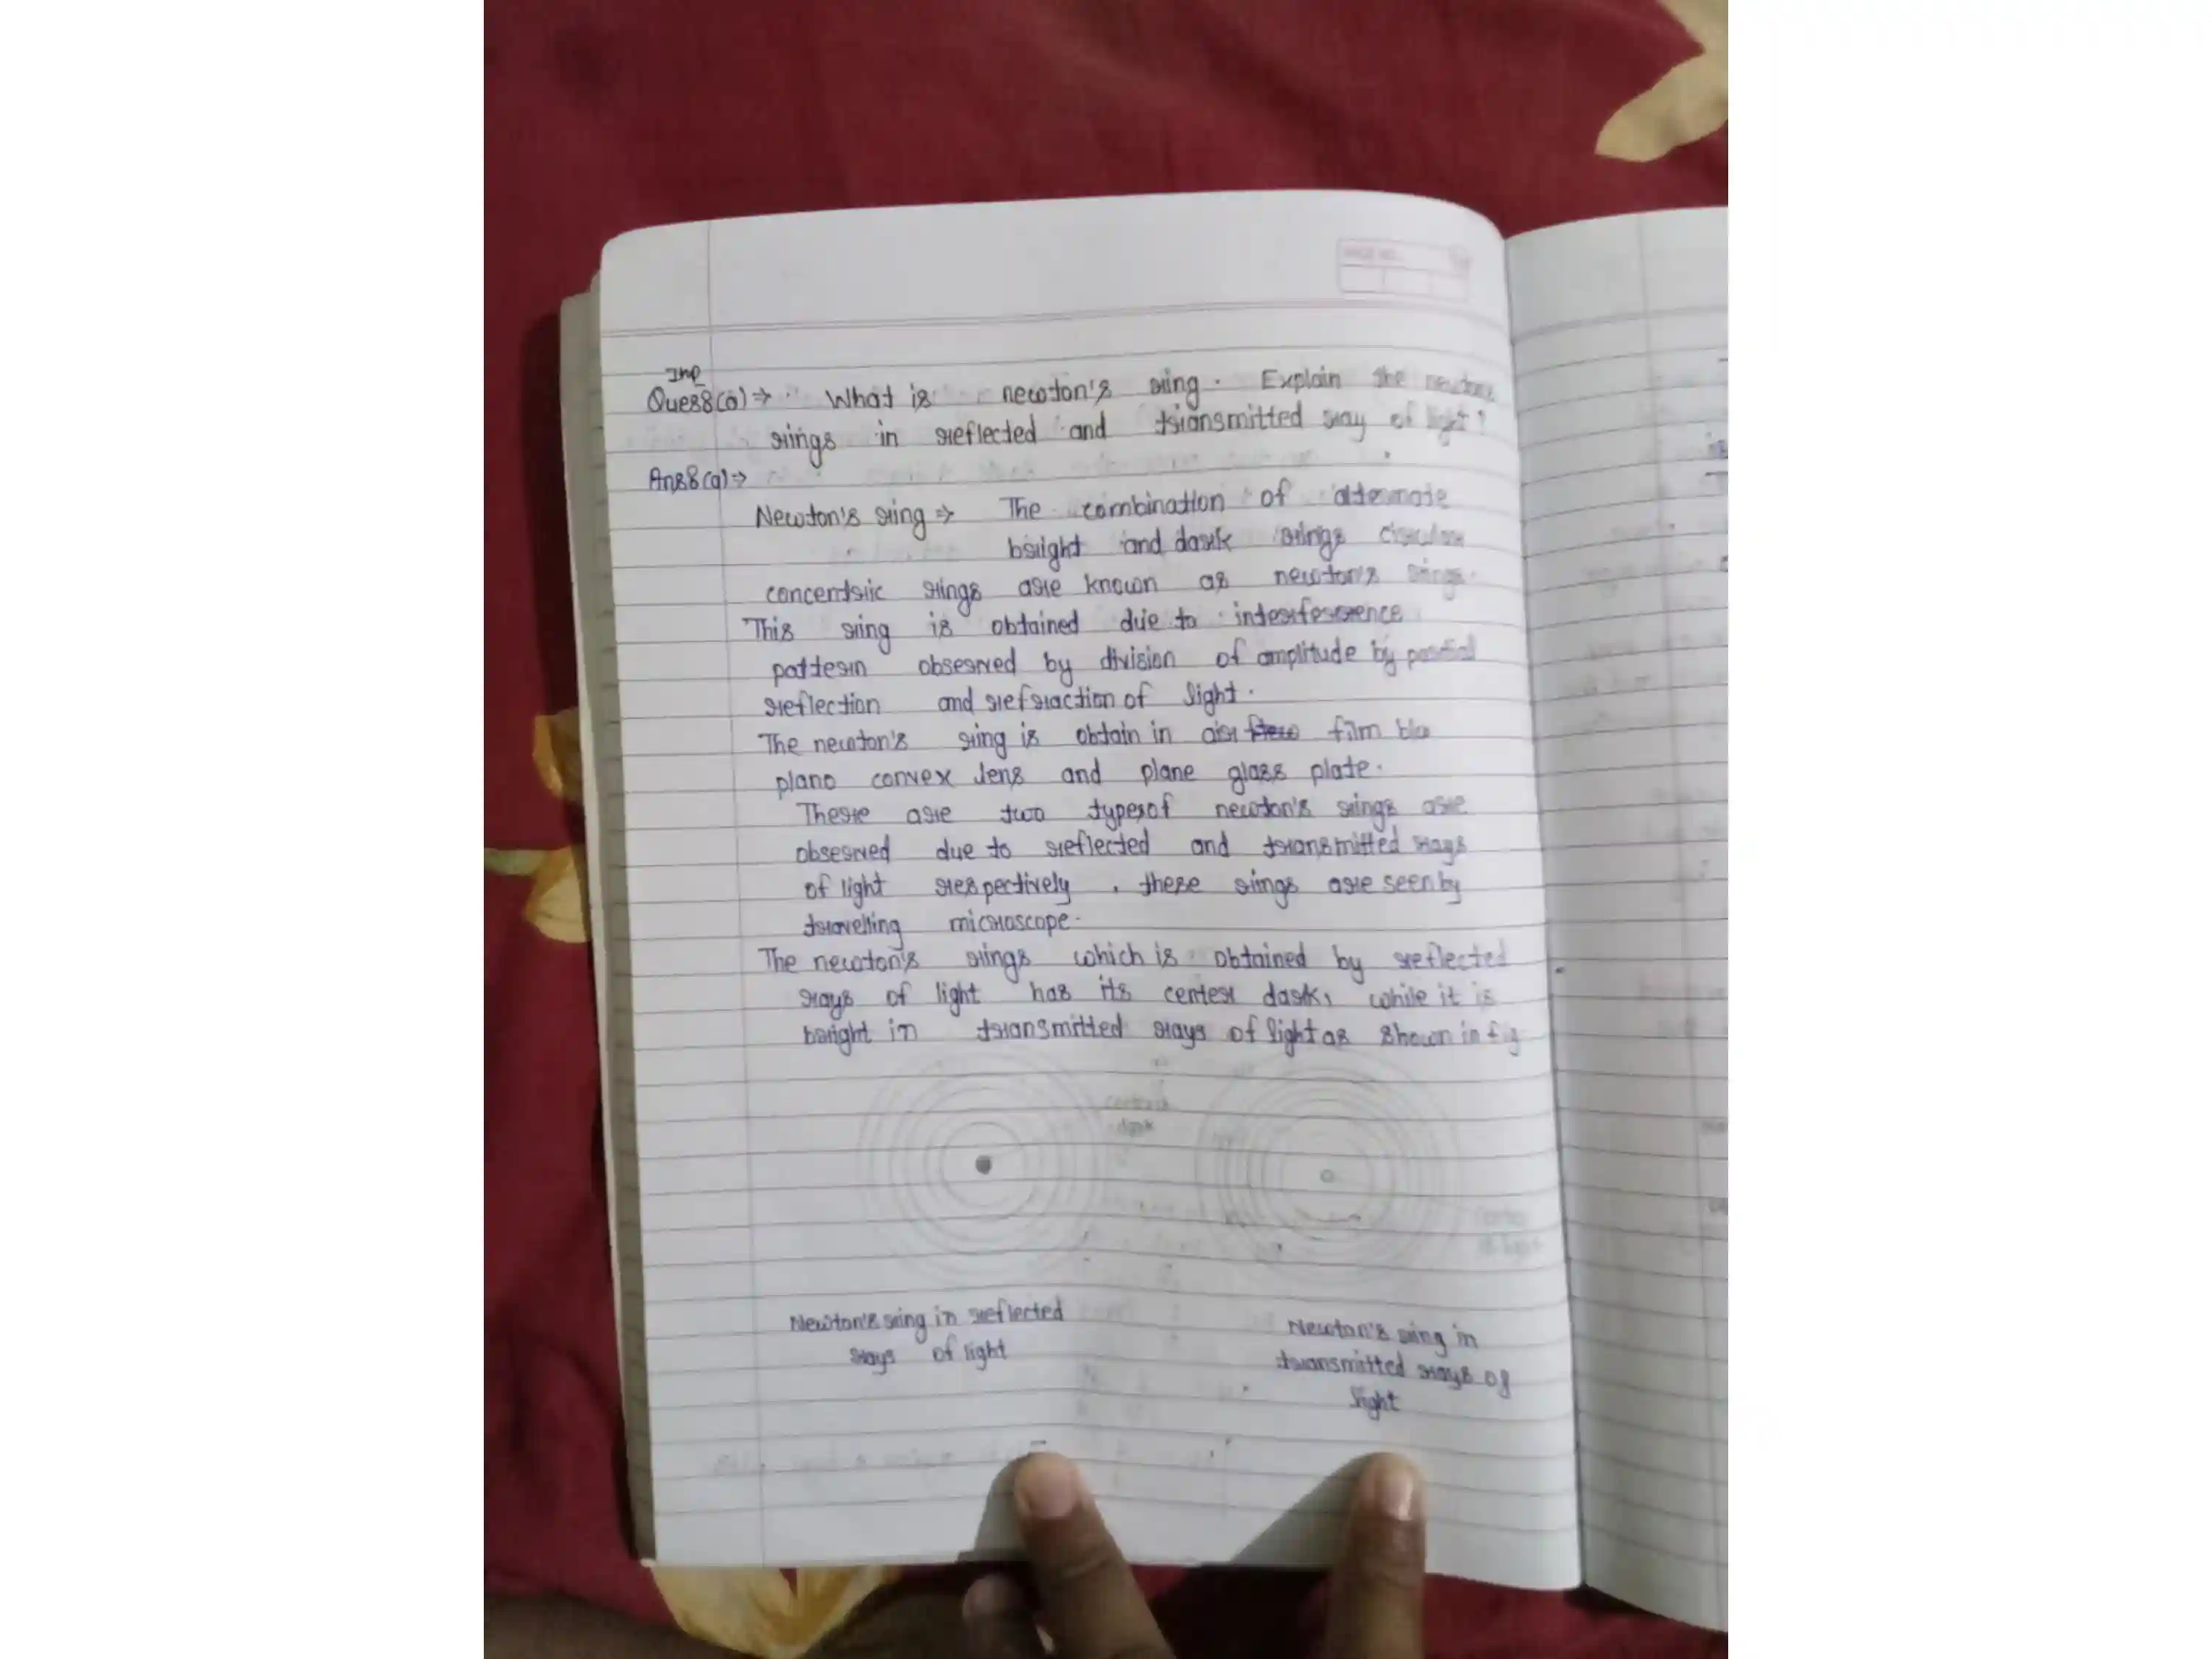 PAGE NO.
Imp
Ques8(a)⇒ What is newton's ring. Explain the newton's
rings in reflected and transmitted ray of light?
Ans8(a)⇒
Newton's ring ⇒ The combination of alternate
bright and dark rings circular
concentric rings are known as newton's rings.
This ring is obtained due to interference
pattern observed by division of amplitude by partial
reflection and refraction of light.
The newton's ring is obtain in air film b/w
plano convex lens and plane glass plate.
There are two types of newton's rings are
observed due to reflected and transmitted rays
of light respectively, these rings are seen by
travelling microscope.
The newton's rings which is obtained by reflected
rays of light has its center dark, while it is
bright in transmitted rays of light as shown in fig
dark
Newton's ring in reflected
rays of light
Newton's ring in
transmitted rays of
light